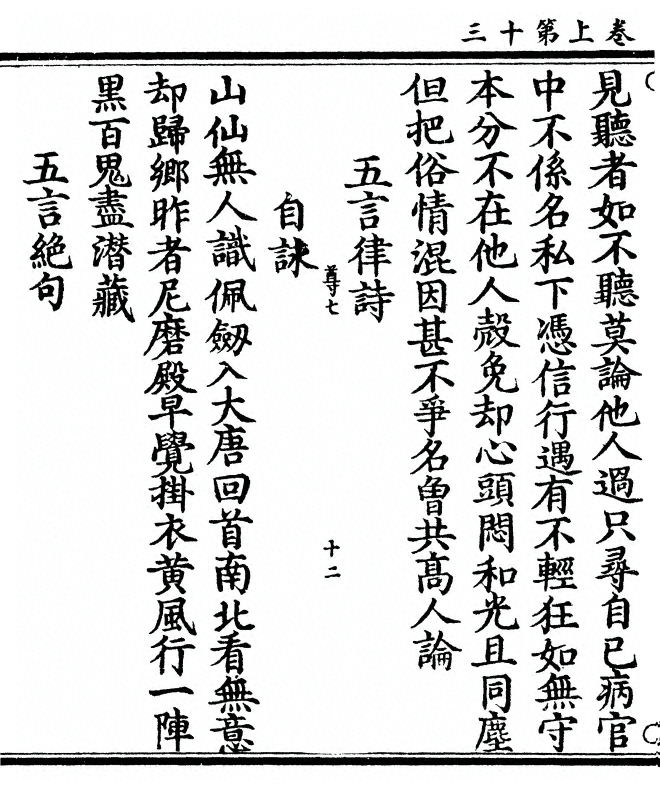 三十第上卷
見聽者如不聽莫論他人過只尋自已病官
中不係名私下憑信行遇有不輕狂如無守
本分不在他人殼免却心頭悶和光且同塵
但把俗情混因甚不爭名魯共高人論
五言律詩
尊七 十二
自詠
山仙無人識佩劒入大唐回首南北看無意
却歸鄉昨者尼磨殿早覺掛衣黄風行一陣
黒百鬼盡潜藏
五言絶句